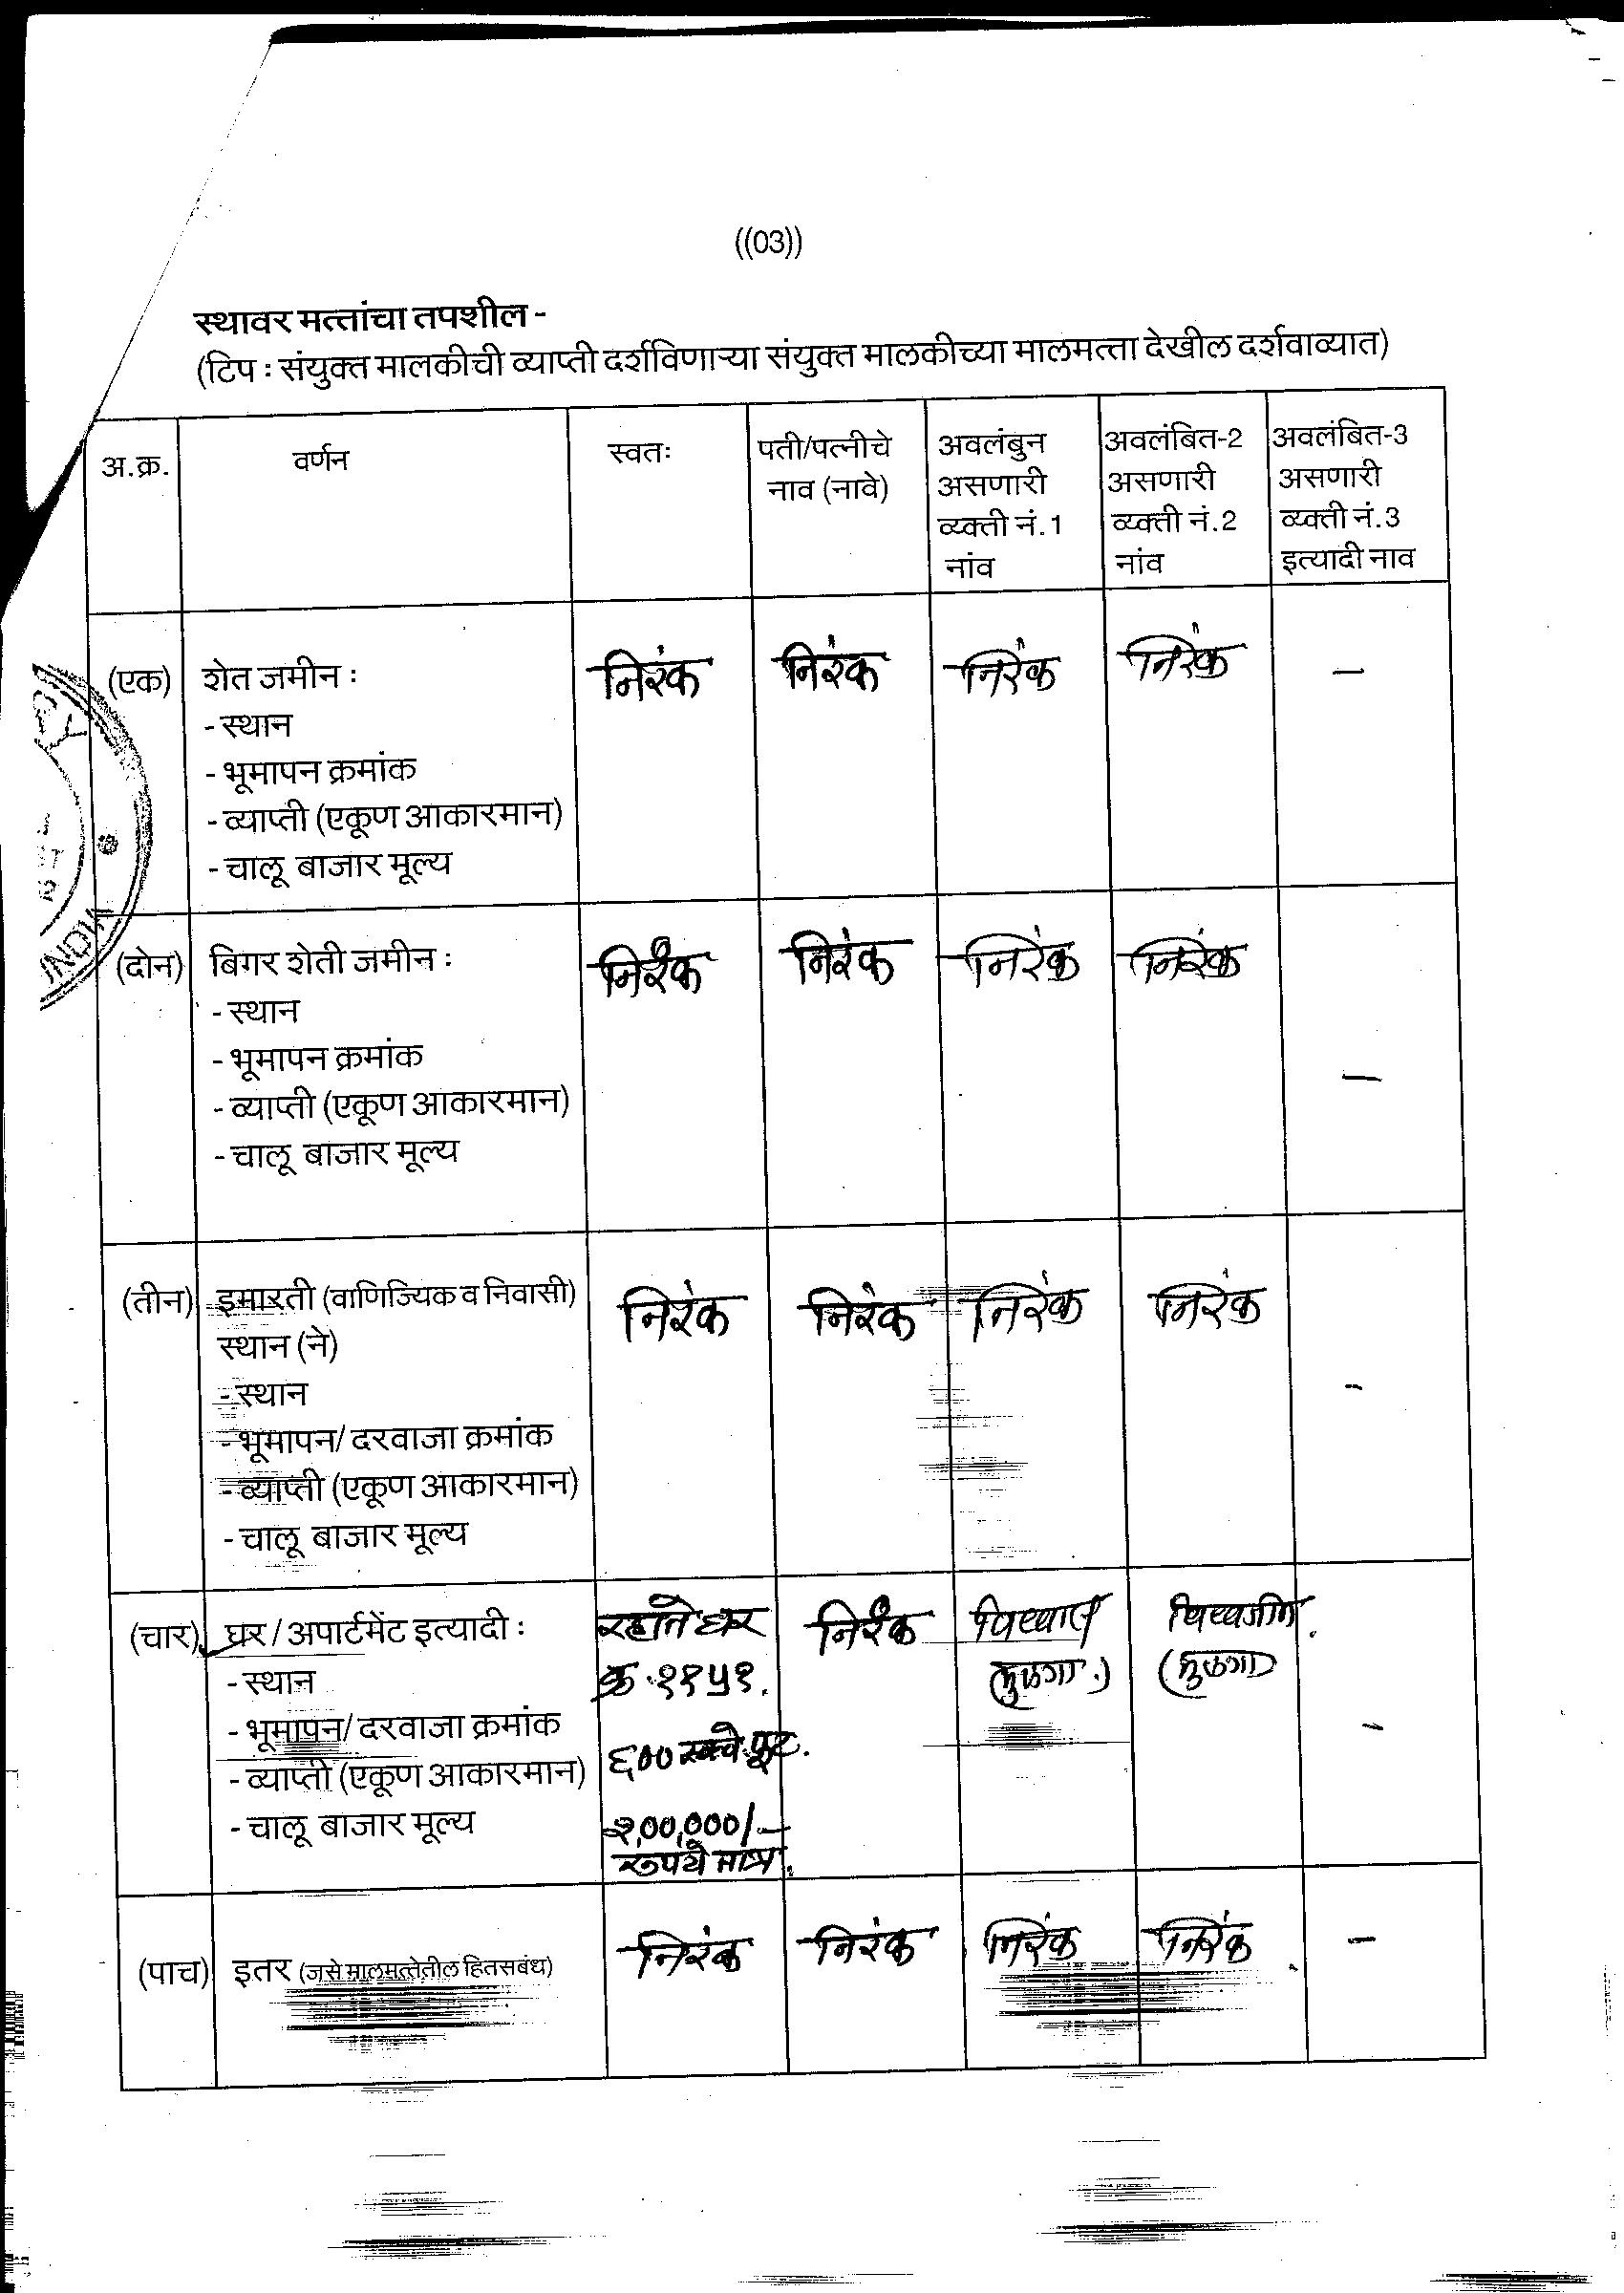 ((03))
स्थावर मत्तांचा तपशील -
(टिप : संयुक्त मालकीची व्याप्ती दर्शविणाऱ्या संयुक्त मालकीच्या मालमत्ता देखील दर्शवाव्यात)
अ.क्र. वर्णन स्वतः पती/पत्नीचे अवलंबुन अवलंबित-2 अवलंबित-3
नाव (नावे) असणारी असणारी असणारी
व्यक्ती नं.1 व्यक्ती नं.2 व्यक्ती नं.3
नांव नांव इत्यादी नाव
(एक) शेत जमीन : निरंक निरंक निरंक निरंक –
- स्थान
- भूमापन क्रमांक
- व्याप्ती (एकूण आकारमान)
- चालू बाजार मूल्य
INDIA
(दोन) बिगर शेती जमीन : निरंक निरंक निरंक निरंक
- स्थान
- भूमापन क्रमांक
- व्याप्ती (एकूण आकारमान) –
- चालू बाजार मूल्य
(तीन) इमारती (वाणिज्यिक व निवासी) निरंक निरंक निरंक निरंक
स्थान (ने)
- स्थान -
- भूमापन/ दरवाजा क्रमांक
- व्याप्ती (एकूण आकारमान)
- चालू बाजार मूल्य
(चार) घर / अपार्टमेंट इत्यादी : रहाते घर निरंक
- स्थान क्र. ११५१. (मुलगा.) (मुलगा)
- भूमापन/ दरवाजा क्रमांक -
- व्याप्ती (एकूण आकारमान) ६०० स्क्वे. फूट.
- चालू बाजार मूल्य २,००,०००/-
रुपये मात्र.
(पाच) इतर (जसे मालमत्तेतील हितसबंध) निरंक निरंक निरंक निरंक -